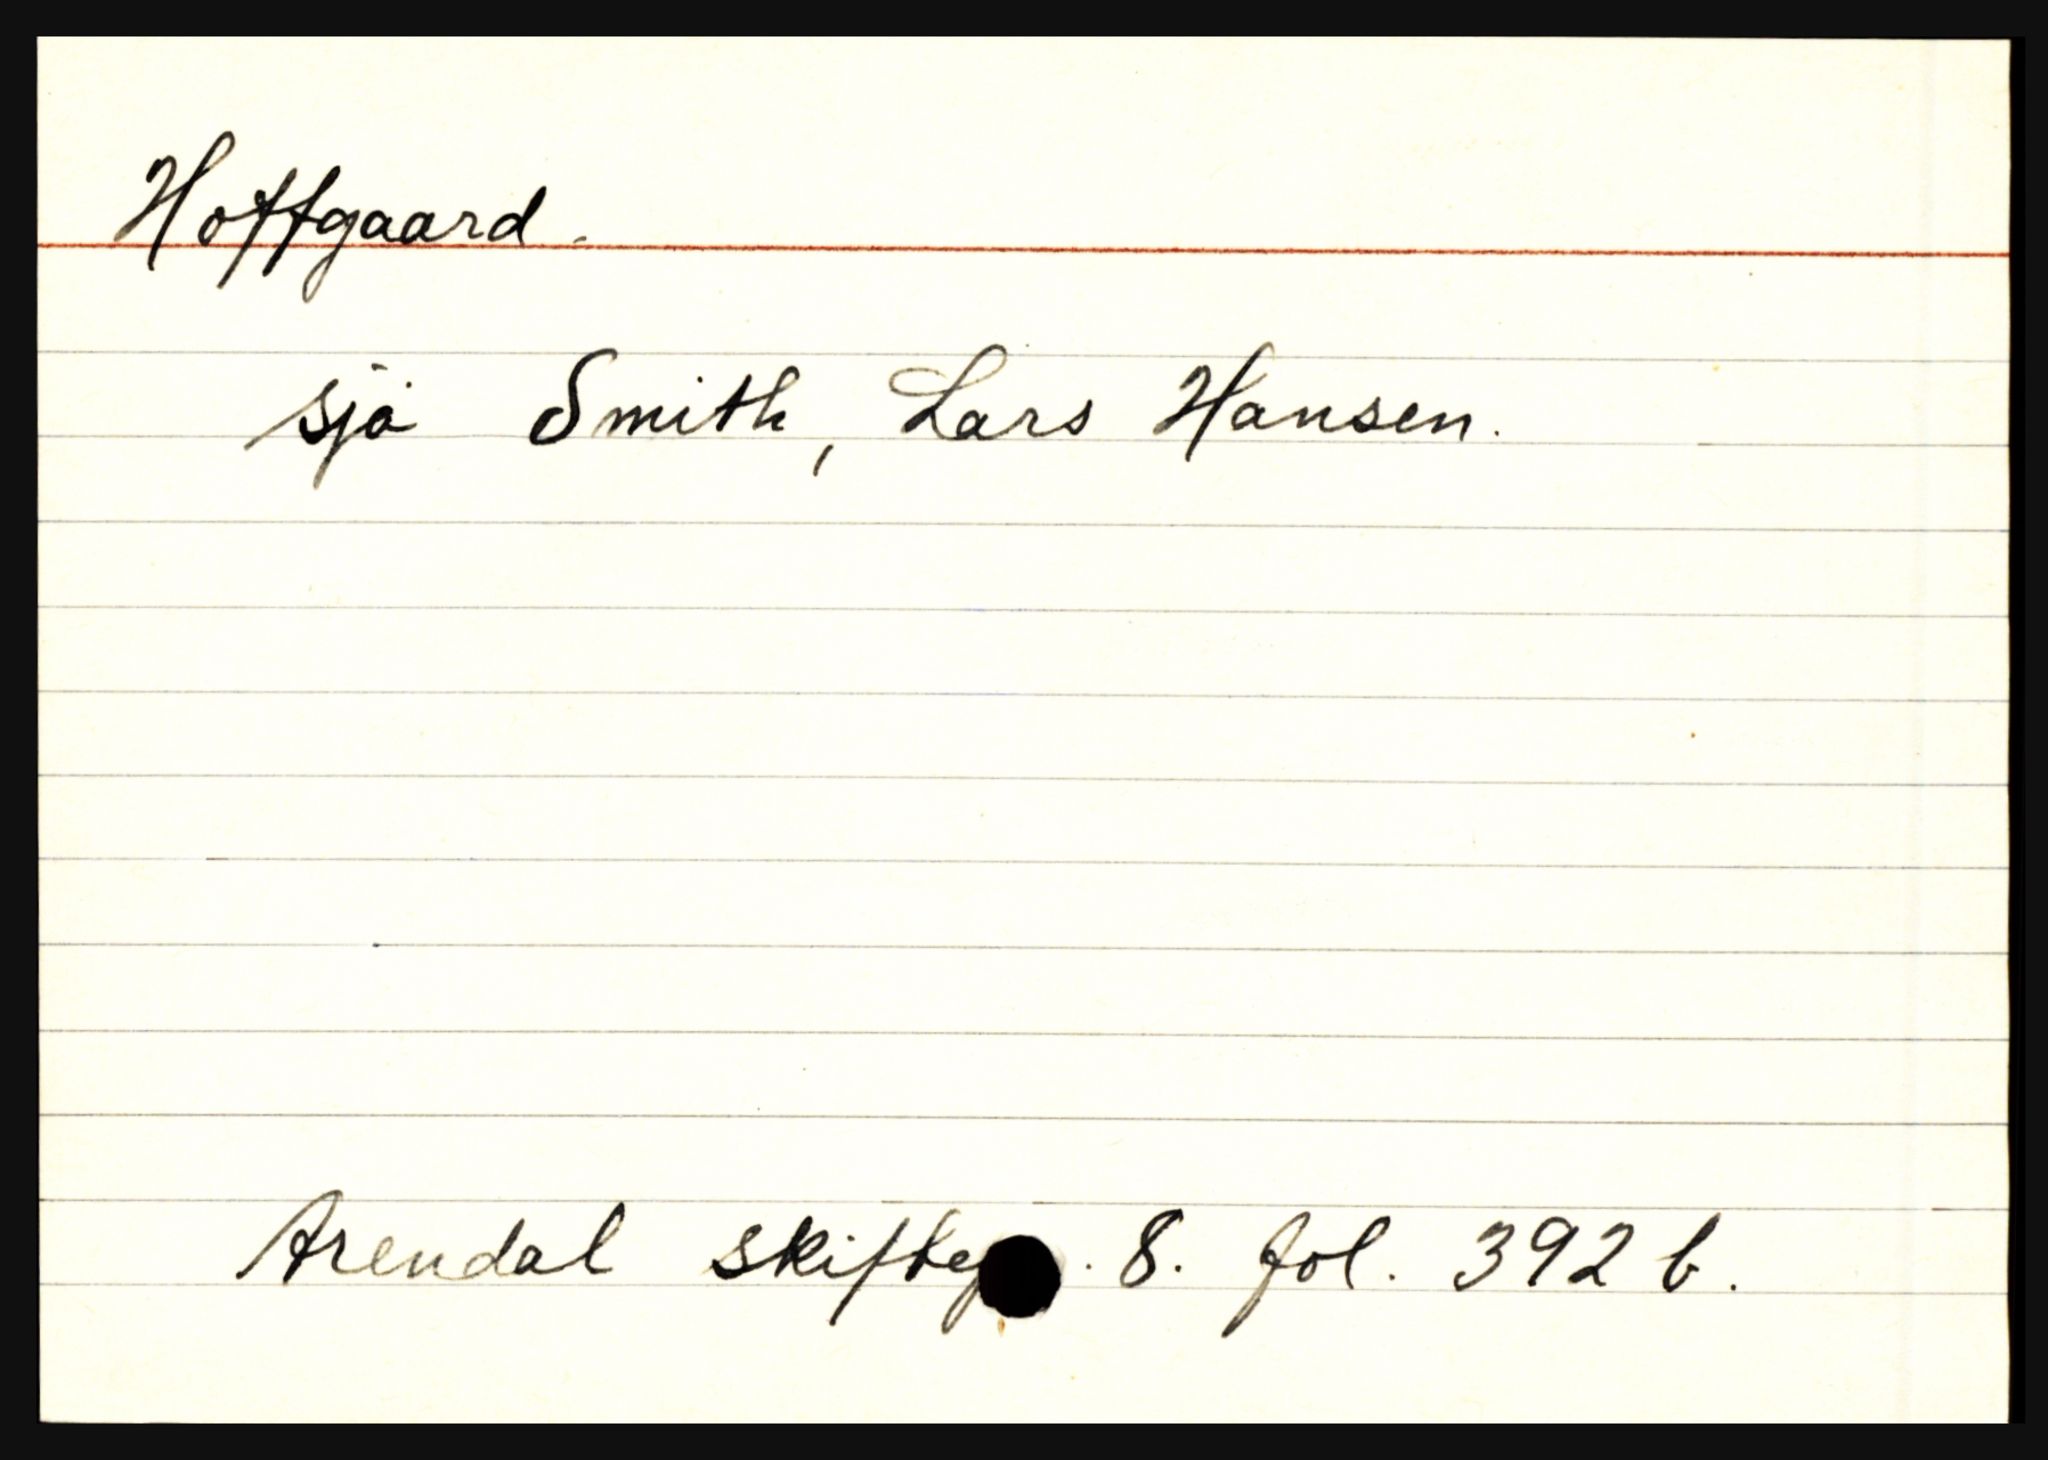 Hoffgaard.
sjå Smith, Lars Hansen.
Arendal skiftep. 8. fol. 392 b.